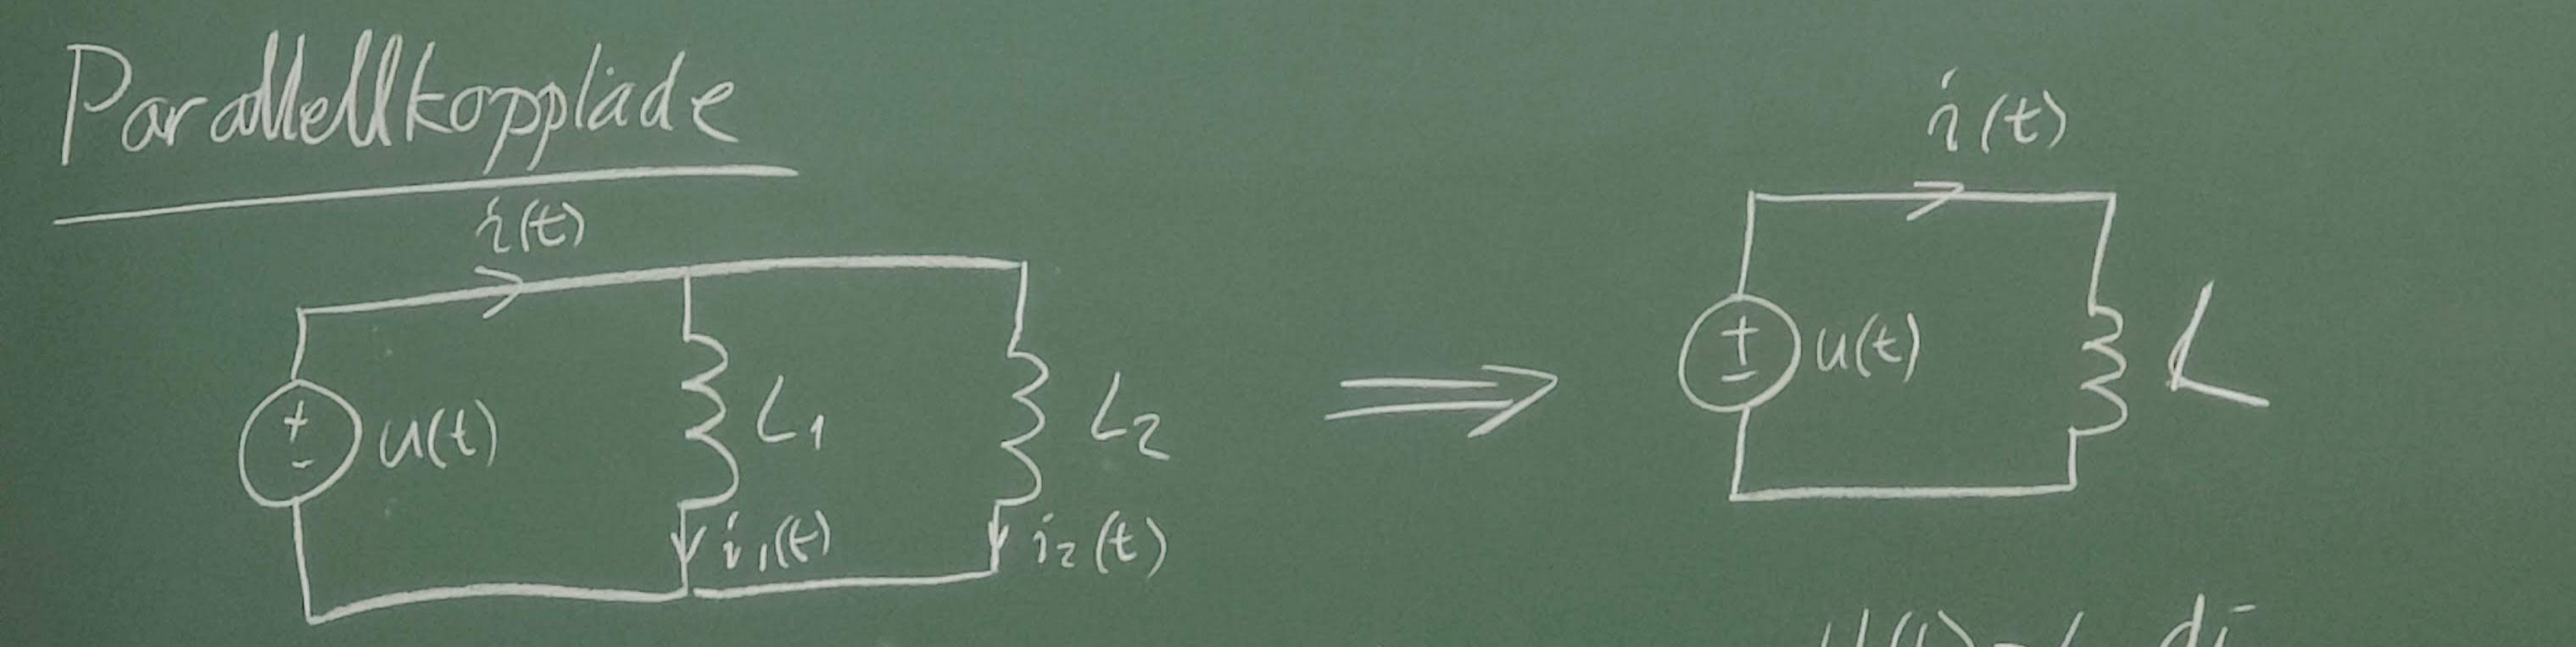 Parallellkopplade
i(t)
+
-
u(t)
L1
L2
i1(t)
i2(t)
⇒
i(t)
+
-
u(t)
L
di